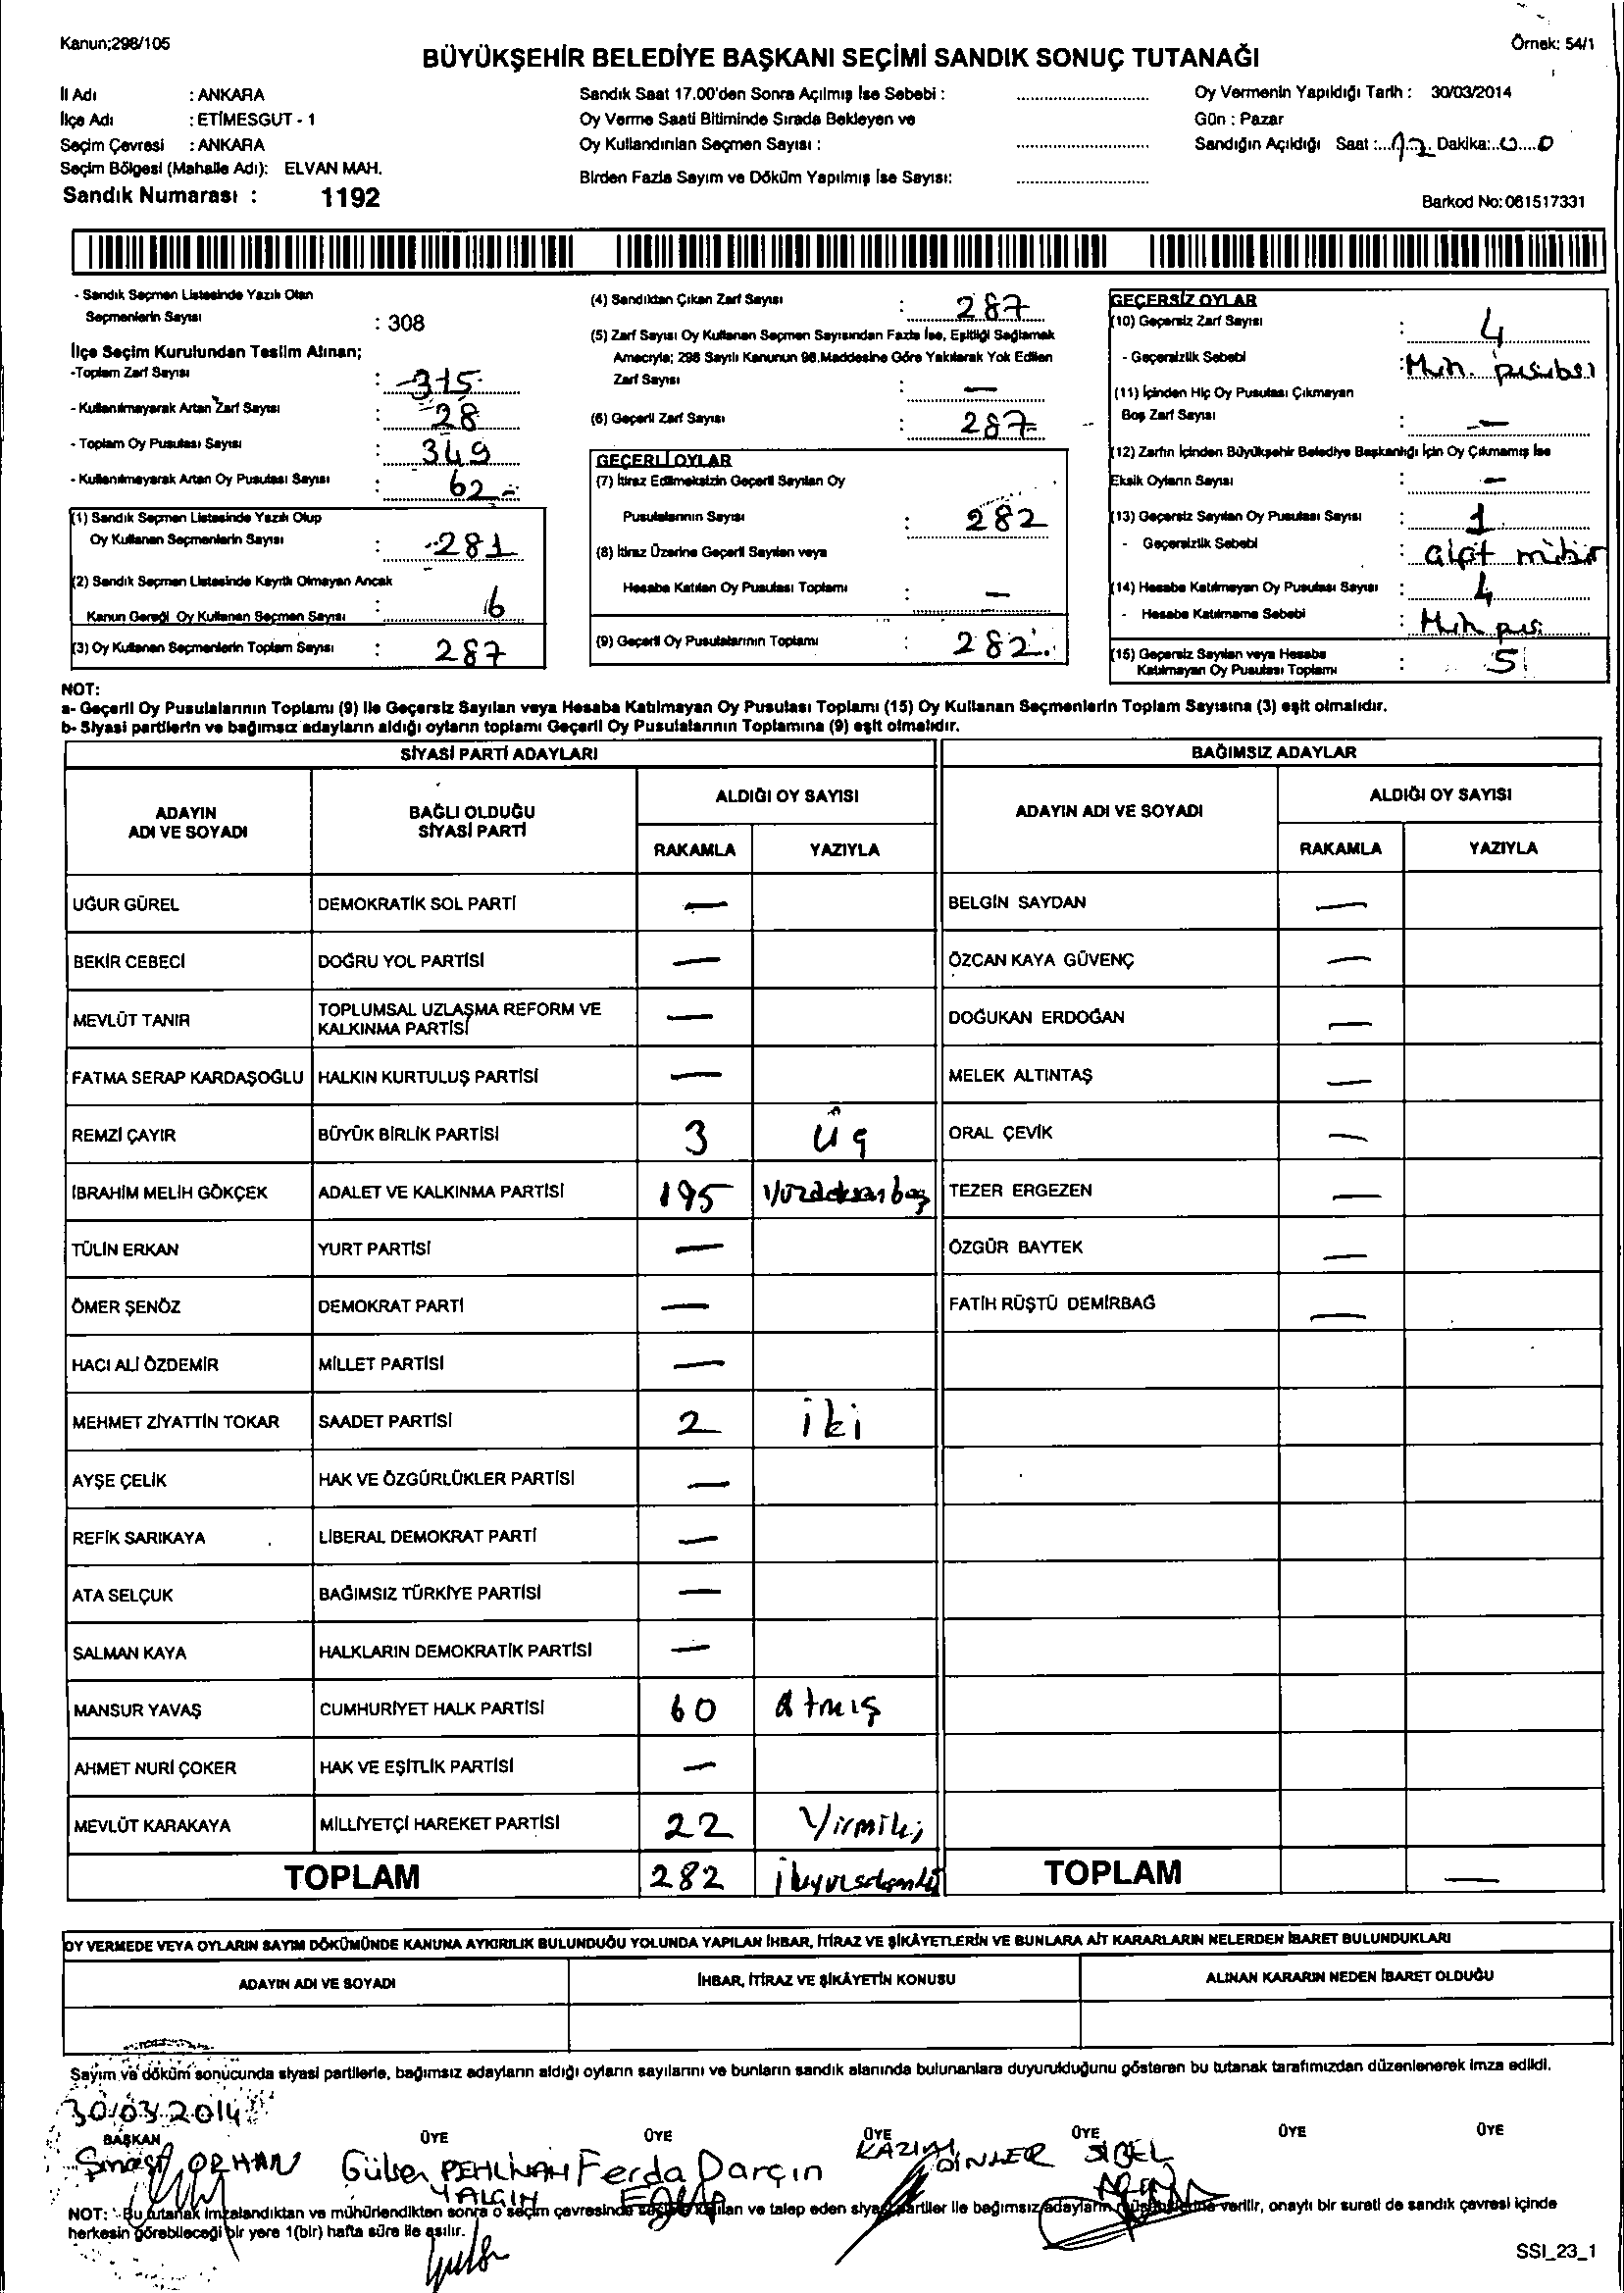 Kanun;298/105
Örnek: 54/1
BÜYÜKŞEHİR BELEDİYE BAŞKANI SEÇİMİ SANDIK SONUÇ TUTANAĞI
İl Adı : ANKARA
İlçe Adı : ETİMESGUT - 1
Seçim Çevresi : ANKARA
Seçim Bölgesi (Mahalle Adı): ELVAN MAH.
Sandık Numarası : 1192
Sandık Saat 17.00'den Sonra Açılmış İse Sebebi :
Oy Verme Saati Bitiminde Sırada Bekleyen ve
Oy Kullandırılan Seçmen Sayısı :
Birden Fazla Sayım ve Döküm Yapılmış İse Sayısı:
Oy Vermenin Yapıldığı Tarih : 30/03/2014
Gün : Pazar
Sandığın Açıldığı Saat : 17 Dakika: 00
Barkod No: 061517331
- Sandık Seçmen Listesinde Yazılı Olan
Seçmenlerin Sayısı : 308
İlçe Seçim Kurulundan Teslim Alınan;
-Toplam Zarf Sayısı : 315
- Kullanılmayarak Artan Zarf Sayısı : 28
- Toplam Oy Pusulası Sayısı : 349
- Kullanılmayarak Artan Oy Pusulası Sayısı : 62
(1) Sandık Seçmen Listesinde Yazılı Olup
Oy Kullanan Seçmenlerin Sayısı : 281
(2) Sandık Seçmen Listesinde Kayıtlı Olmayan Ancak
Kanun Gereği Oy Kullanan Seçmen Sayısı : 6
(3) Oy Kullanan Seçmenlerin Toplam Sayısı : 287
(4) Sandıktan Çıkan Zarf Sayısı : 287
(5) Zarf Sayısı Oy Kullanan Seçmen Sayısından Fazla İse, Eşitliği Sağlamak
Amacıyla; 298 Sayılı Kanunun 98.Maddesine Göre Yakılarak Yok Edilen
Zarf Sayısı : —
(6) Geçerli Zarf Sayısı : 287
GEÇERLİ OYLAR
(7) İtiraz Edilmeksizin Geçerli Sayılan Oy
Pusulalarının Sayısı : 282
(8) İtiraz Üzerine Geçerli Sayılan veya
Hesaba Katılan Oy Pusulası Toplamı : —
(9) Geçerli Oy Pusulalarının Toplamı : 282
GEÇERSİZ OYLAR
(10) Geçersiz Zarf Sayısı : 4
- Geçersizlik Sebebi : Müh. pusulası
(11) İçinden Hiç Oy Pusulası Çıkmayan
Boş Zarf Sayısı : —
(12) Zarfın İçinden Büyükşehir Belediye Başkanlığı İçin Oy Çıkmamış İse
Eksik Oyların Sayısı : —
(13) Geçersiz Sayılan Oy Pusulası Sayısı : 1
- Geçersizlik Sebebi :
(14) Hesaba Katılmayan Oy Pusulası Sayısı : 4
- Hesaba Katılmama Sebebi : Müh pus.
(15) Geçersiz Sayılan veya Hesaba
Katılmayan Oy Pusulası Toplamı : 5
NOT:
a- Geçerli Oy Pusulalarının Toplamı (9) ile Geçersiz Sayılan veya Hesaba Katılmayan Oy Pusulası Toplamı (15) Oy Kullanan Seçmenlerin Toplam Sayısına (3) eşit olmalıdır.
b- Siyasi partilerin ve bağımsız adayların aldığı oyların toplamı Geçerli Oy Pusulalarının Toplamına (9) eşit olmalıdır.
SİYASİ PARTİ ADAYLARI
BAĞIMSIZ ADAYLAR
ADAYIN ADI VE SOYADI
BAĞLI OLDUĞU SİYASİ PARTİ
ALDIĞI OY SAYISI
RAKAMLA YAZIYLA
ADAYIN ADI VE SOYADI
ALDIĞI OY SAYISI
RAKAMLA YAZIYLA
UĞUR GÜREL DEMOKRATİK SOL PARTİ — BELGİN SAYDAN —
BEKİR CEBECİ DOĞRU YOL PARTİSİ — ÖZCAN KAYA GÜVENÇ —
MEVLÜT TANIR TOPLUMSAL UZLAŞMA REFORM VE KALKINMA PARTİSİ — DOĞUKAN ERDOĞAN —
FATMA SERAP KARDAŞOĞLU HALKIN KURTULUŞ PARTİSİ — MELEK ALTINTAŞ —
REMZİ ÇAYIR BÜYÜK BİRLİK PARTİSİ 3 Üç ORAL ÇEVİK —
İBRAHİM MELİH GÖKÇEK ADALET VE KALKINMA PARTİSİ 195 Yüzdoksanbeş TEZER ERGEZEN —
TÜLİN ERKAN YURT PARTİSİ — ÖZGÜR BAYTEK —
ÖMER ŞENÖZ DEMOKRAT PARTİ — FATİH RÜŞTÜ DEMİRBAĞ —
HACI ALİ ÖZDEMİR MİLLET PARTİSİ —
MEHMET ZİYATTİN TOKAR SAADET PARTİSİ 2 iki
AYŞE ÇELİK HAK VE ÖZGÜRLÜKLER PARTİSİ —
REFİK SARIKAYA LİBERAL DEMOKRAT PARTİ —
ATA SELÇUK BAĞIMSIZ TÜRKİYE PARTİSİ —
SALMAN KAYA HALKLARIN DEMOKRATİK PARTİSİ —
MANSUR YAVAŞ CUMHURİYET HALK PARTİSİ 60 Atmış
AHMET NURİ ÇOKER HAK VE EŞİTLİK PARTİSİ —
MEVLÜT KARAKAYA MİLLİYETÇİ HAREKET PARTİSİ 22 Yirmiki
TOPLAM 282 ikiyüzsekseniki TOPLAM —
OY VERMEDE VEYA OYLARIN SAYIM DÖKÜMÜNDE KANUNA AYKIRILIK BULUNDUĞU YOLUNDA YAPILAN İHBAR, İTİRAZ VE ŞİKÂYETLERİN VE BUNLARA AİT KARARLARIN NELERDEN İBARET BULUNDUKLARI
ADAYIN ADI VE SOYADI İHBAR, İTİRAZ VE ŞİKÂYETİN KONUSU ALINAN KARARIN NEDEN İBARET OLDUĞU
Sayım ve döküm sonucunda siyasi partilerle, bağımsız adayların aldığı oyların sayılarını ve bunların sandık alanında bulunanlara duyurulduğunu gösteren bu tutanak tarafımızdan düzenlenerek imza edildi.
30/03/2014
BAŞKAN ÜYE ÜYE ÜYE ÜYE ÜYE ÜYE
Şinasi ORHAN Gülser PEHLİVAN Ferda Darçın KAZIM DİNLER SİBEL
YALÇIN
NOT: Bu tutanak imzalandıktan ve mühürlendikten sonra o seçim çevresinde seçime katılan ve talep eden siyasi partiler ile bağımsız adayların müşahitlerine verilir, onaylı bir sureti de sandık çevresi içinde
herkesin görebileceği bir yere 1(bir) hafta süre ile asılır.
SSI_23_1